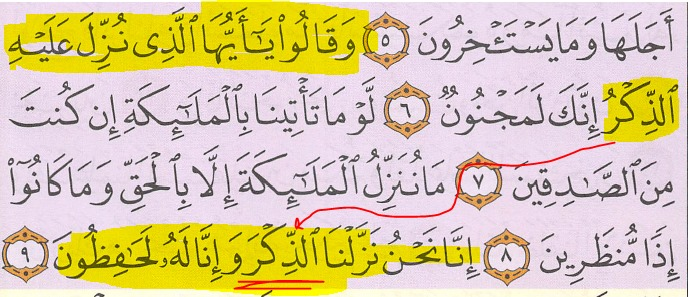 أَجَلَهَا وَمَا يَسْتَـْٔخِرُونَ ٥ وَقَالُوا۟ يَـٰٓأَيُّهَا ٱلَّذِى نُزِّلَ عَلَيْهِ
ٱلذِّكْرُ إِنَّكَ لَمَجْنُونٌ ٦ لَّوْ مَا تَأْتِينَا بِٱلْمَلَـٰٓئِكَةِ إِن كُنتَ
مِنَ ٱلصَّـٰدِقِينَ ٧ مَا نُنَزِّلُ ٱلْمَلَـٰٓئِكَةَ إِلَّا بِٱلْحَقِّ وَمَا كَانُوٓا۟
إِذًا مُّنظَرِينَ ٨ إِنَّا نَحْنُ نَزَّلْنَا ٱلذِّكْرَ وَإِنَّا لَهُۥ لَحَـٰفِظُونَ ٩